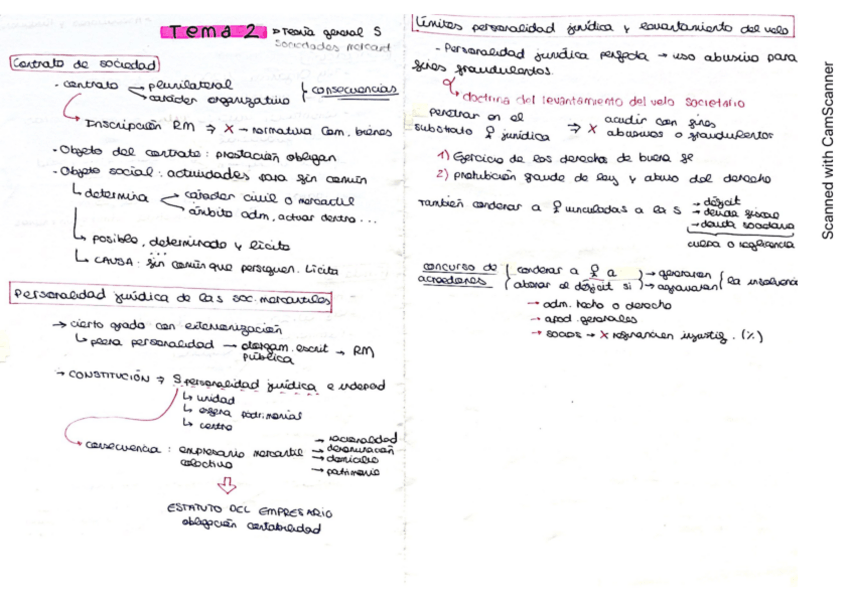 Tema 2 → Teoría general S
Sociedades mercant
Contrato de sociedad
- contrato → plurilateral
→ carácter organizativo } consecuencias
Inscripción RM ⇒ X → normativa Com. bienes
- Objeto del contrato: prestación obligan
- Objeto social: actividades para fin común
↳ determina → carácter civil o mercantil
→ ámbito adm, actuar dentro ...
↳ posible, determinado y lícito
↳ CAUSA: fin común que persiguen. Lícita
Personalidad jurídica de las soc. mercantiles
→ cierto grado con externización
↳ plena personalidad → otorgam. escrit → RM
pública
→ CONSTITUCIÓN ⇒ S. personalidad jurídica e independ
↳ unidad
↳ esfera patrimonial
↳ centro
consecuencia: empresario mercantil
colectivo
→ nacionalidad
→ denominación
→ domicilio
→ patrimonio
ESTATUTO DEL EMPRESARIO
obligación contabilidad
Límites personalidad jurídica y levantamiento del velo
- Personalidad jurídica perfecta → uso abusivo para
fines fraudulentos.
doctrina del levantamiento del velo societario
penetrar en el
substrato jurídica ⇒ X acudir con fines
abusivos o fraudulentos
1) Ejercicio de los derecho de buena fe
2) prohibición fraude de ley y abuso del derecho
También condenar a vinculadas a la S → déficit
→ deuda fiscal
→ deuda societaria
culpa o negligencia
concurso de
acreedores
{ condenar a a
abonar el déficit si
→ generaron
→ agravaron { la insolvencia
→ adm. hecho o derecho
→ apod. generales
→ socios → X